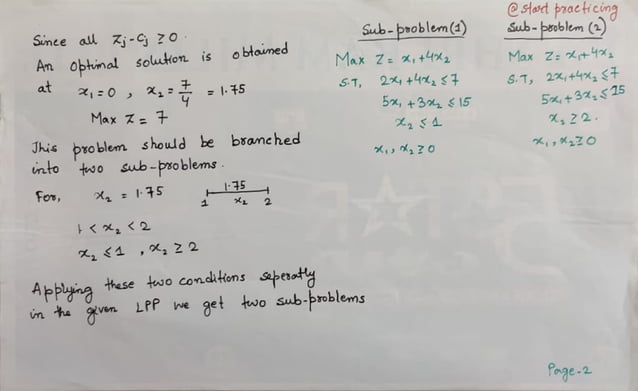 Since all Zj-Cj ≥ 0.
An Optimal solution is obtained
at x₁=0 , x₂= 7/4 = 1.75
Max Z = 7
This problem should be branched
into two sub-problems.
For, x₂ = 1.75
1.75
1 x₂ 2
1 < x₂ < 2
x₂ ≤ 1 , x₂ ≥ 2
Applying these two conditions seperatly
in the given LPP we get two sub-problems
Sub-problem(1)
Max Z = x₁+4x₂
S.T, 2x₁+4x₂ ≤ 7
5x₁ + 3x₂ ≤ 15
x₂ ≤ 1
x₁, x₂ ≥ 0
@start practicing
Sub-problem (2)
Max Z = x₁+4x₂
S.T, 2x₁+4x₂ ≤ 7
5x₁+3x₂ ≤ 15
x₂ ≥ 2.
x₁, x₂ ≥ 0
Page-2